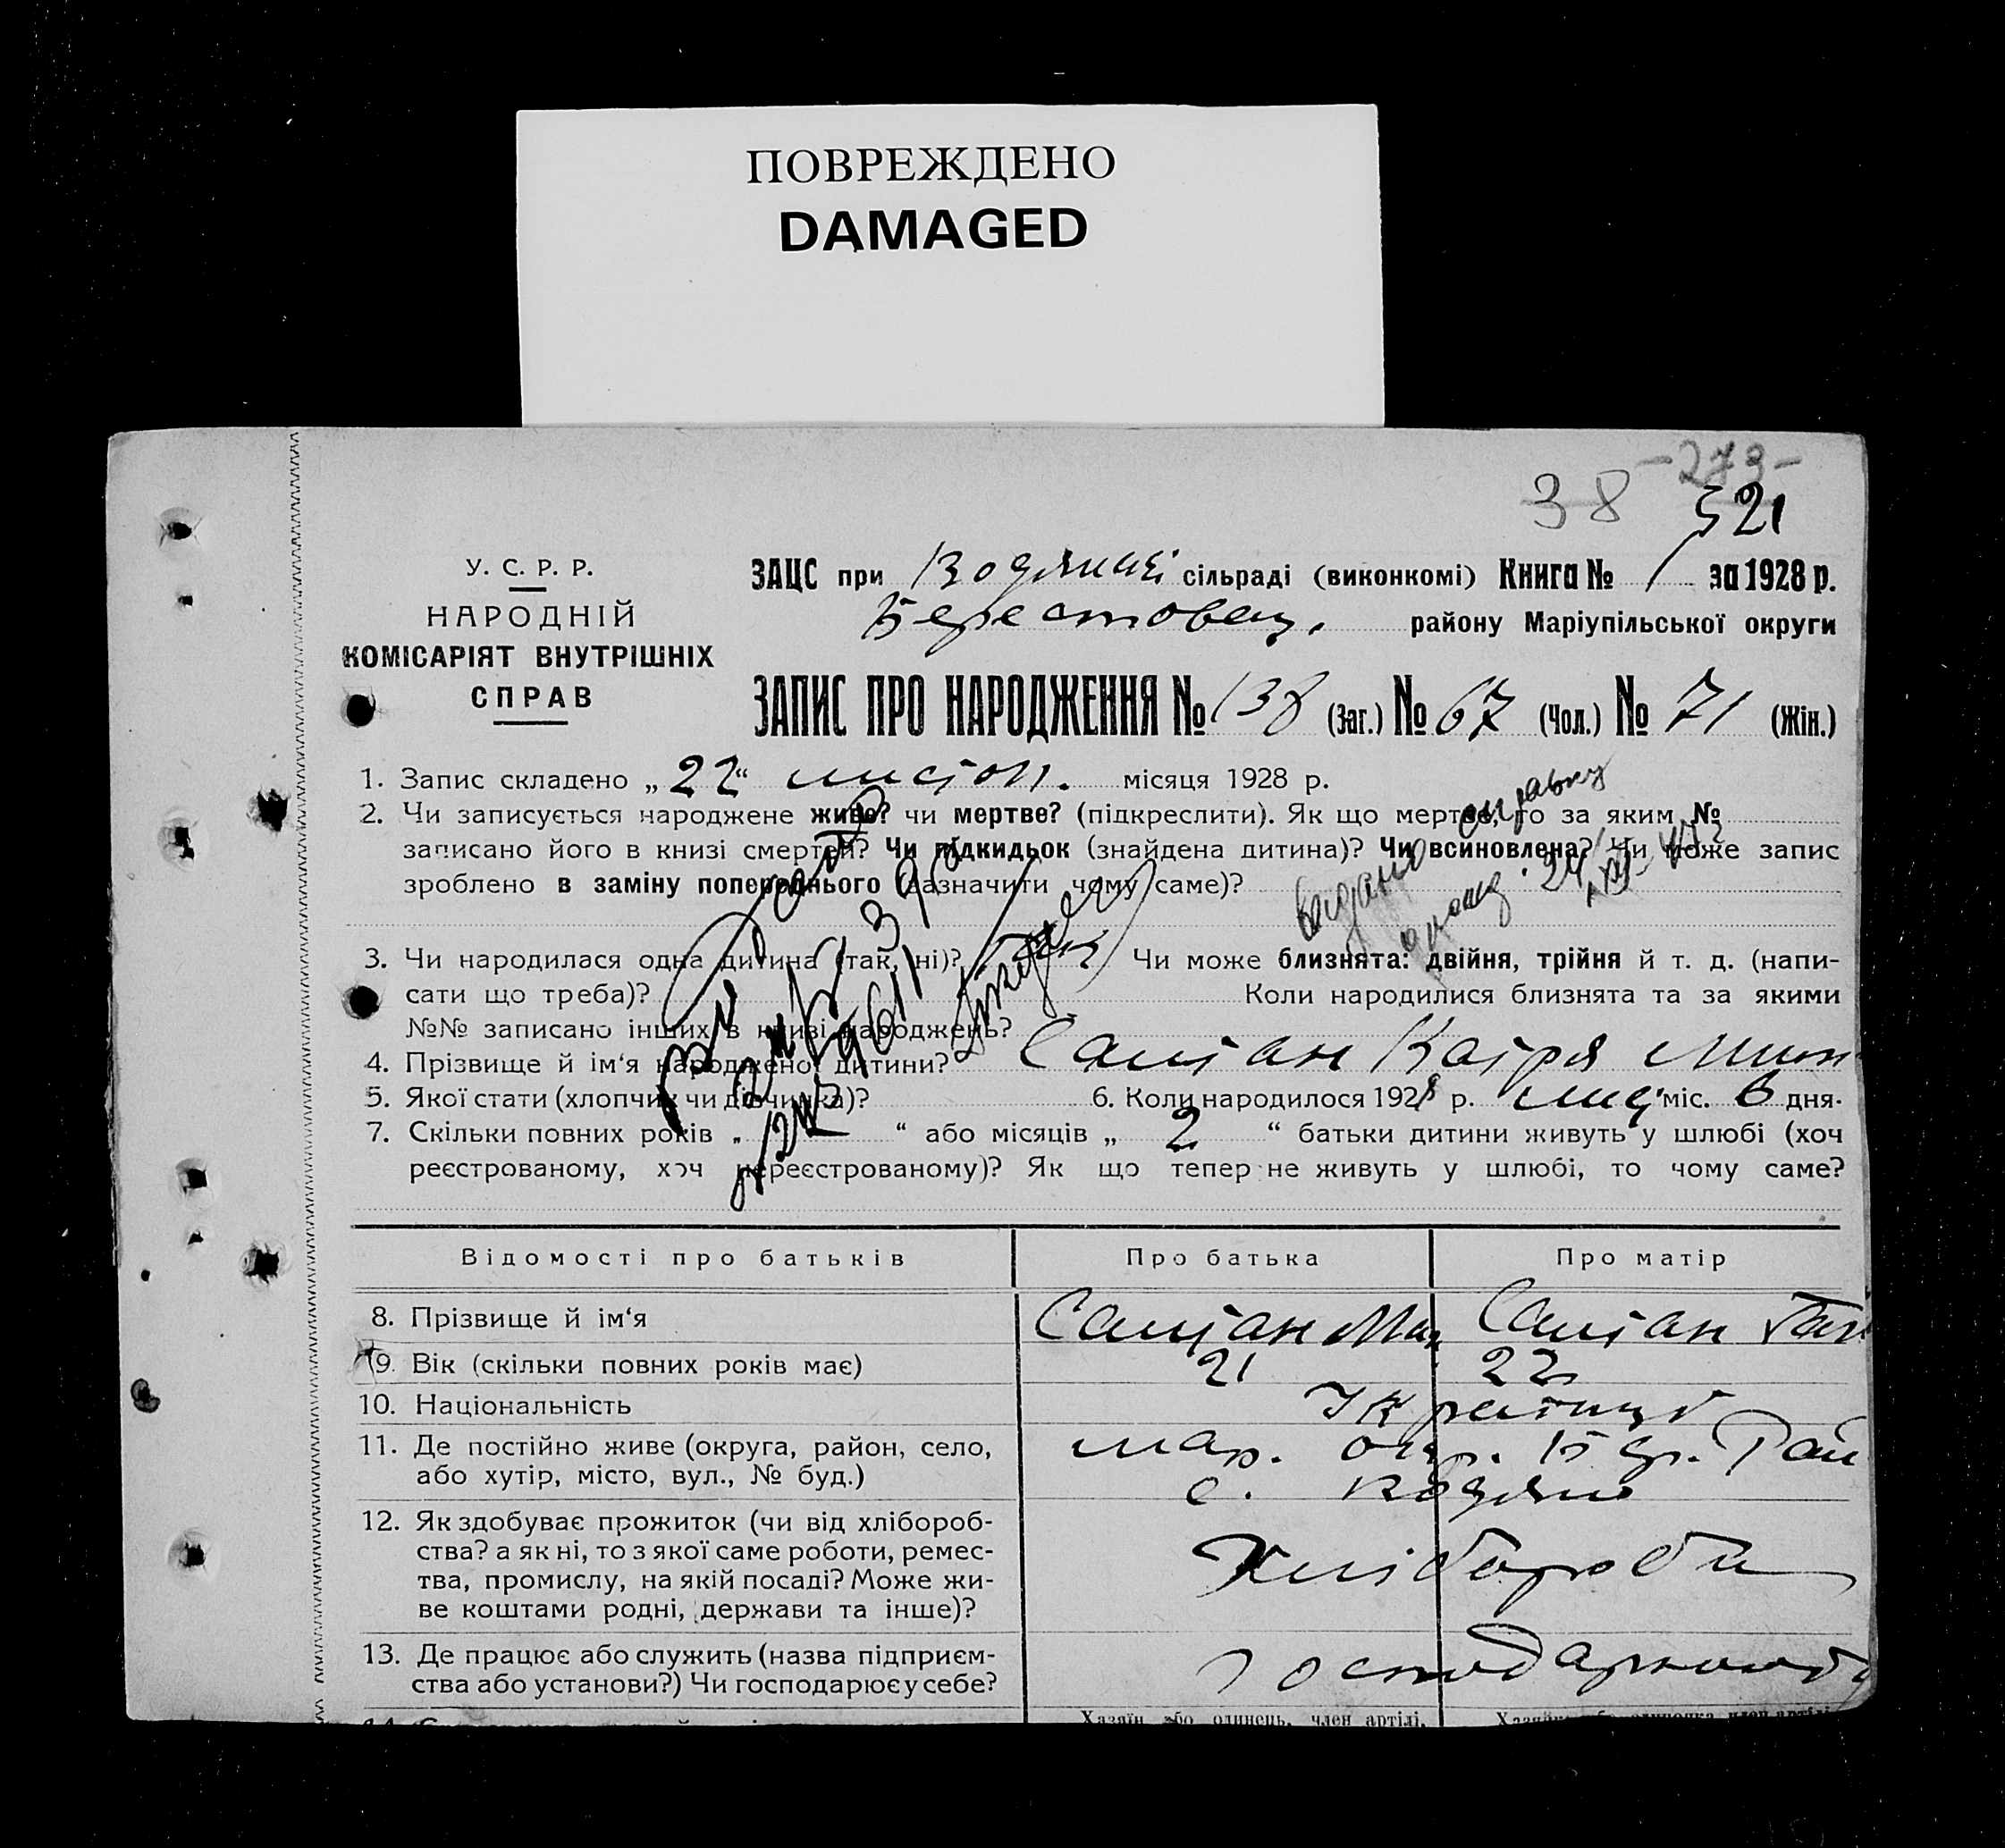 ПОВРЕЖДЕНО
DAMAGED
-273-
38
521
У. С. Р. Р.
НАРОДНІЙ
КОМІСАРІЯТ ВНУТРІШНІХ
СПРАВ
ЗАЦС при Водяній сільраді (виконкомі) Книга № 1 за 1928 р.
Берестовец. району Маріупільської округи
ЗАПИС ПРО НАРОДЖЕННЯ № 138 (Заг.) № 67 (Чол.) № 71 (Жін.)
1. Запис складено „22“ листоп. місяця 1928 р.
2. Чи записується народжене живе? чи мертве? (підкреслити). Як що мертве, то за яким №
записано його в книзі смертей? Чи підкидьок (знайдена дитина)? Чи всиновлена? Чи може запис
зроблено в заміну попереднього (зазначити чому саме)?
3. Чи народилася одна дитина (так, ні)? Так Чи може близнята: двійня, трійня й т. д. (напи-
сати що треба)? Коли народилися близнята та за якими
№№ записано інших в книзі народжень?
4. Прізвище й ім‘я народженої дитини? Катря
5. Якої стати (хлопчик чи дівчинка)? 6. Коли народилося 1928 р. лис. міс. 6 дня.
7. Скільки повних років „ “ або місяців „ 2 “ батьки дитини живуть у шлюбі (хоч
реєстрованому, хоч нереєстрованому)? Як що тепер не живуть у шлюбі, то чому саме?
Відомості про батьків Про батька Про матір
8. Прізвище й ім‘я
9. Вік (скільки повних років має) 21 22
10. Національність
11. Де постійно живе (округа, район, село,
або хутір, місто, вул., № буд.) мар. окр. Б др. Рай
с. Водяно
12. Як здобуває прожиток (чи від хлібороб-
ства? а як ні, то з якої саме роботи, ремес-
тва, промислу, на якій посаді? Може жи-
ве коштами родні, держави та інше)? Хлібороби
13. Де працює або служить (назва підприєм-
ства або установи?) Чи господарює у себе?
Хазяїн або одинець, член артілі,